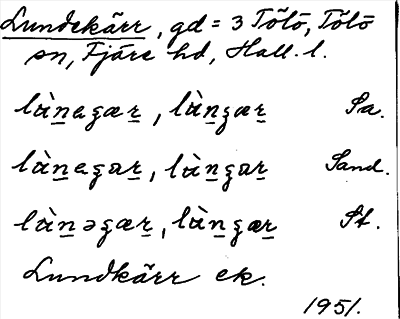 Lundekärr, gd = 3 Tölö, Tölö
sn, Fjäre hd, Hall. l.
lùn̲aʒær̲, lùn̲ʒær̲ Sa.
lùn̲aʒar̲, lùn̲ʒar̲ Sand.
lùn̲əʒær̲, lùn̲ʒær̲ St.
Lundkärr ek.
1951.